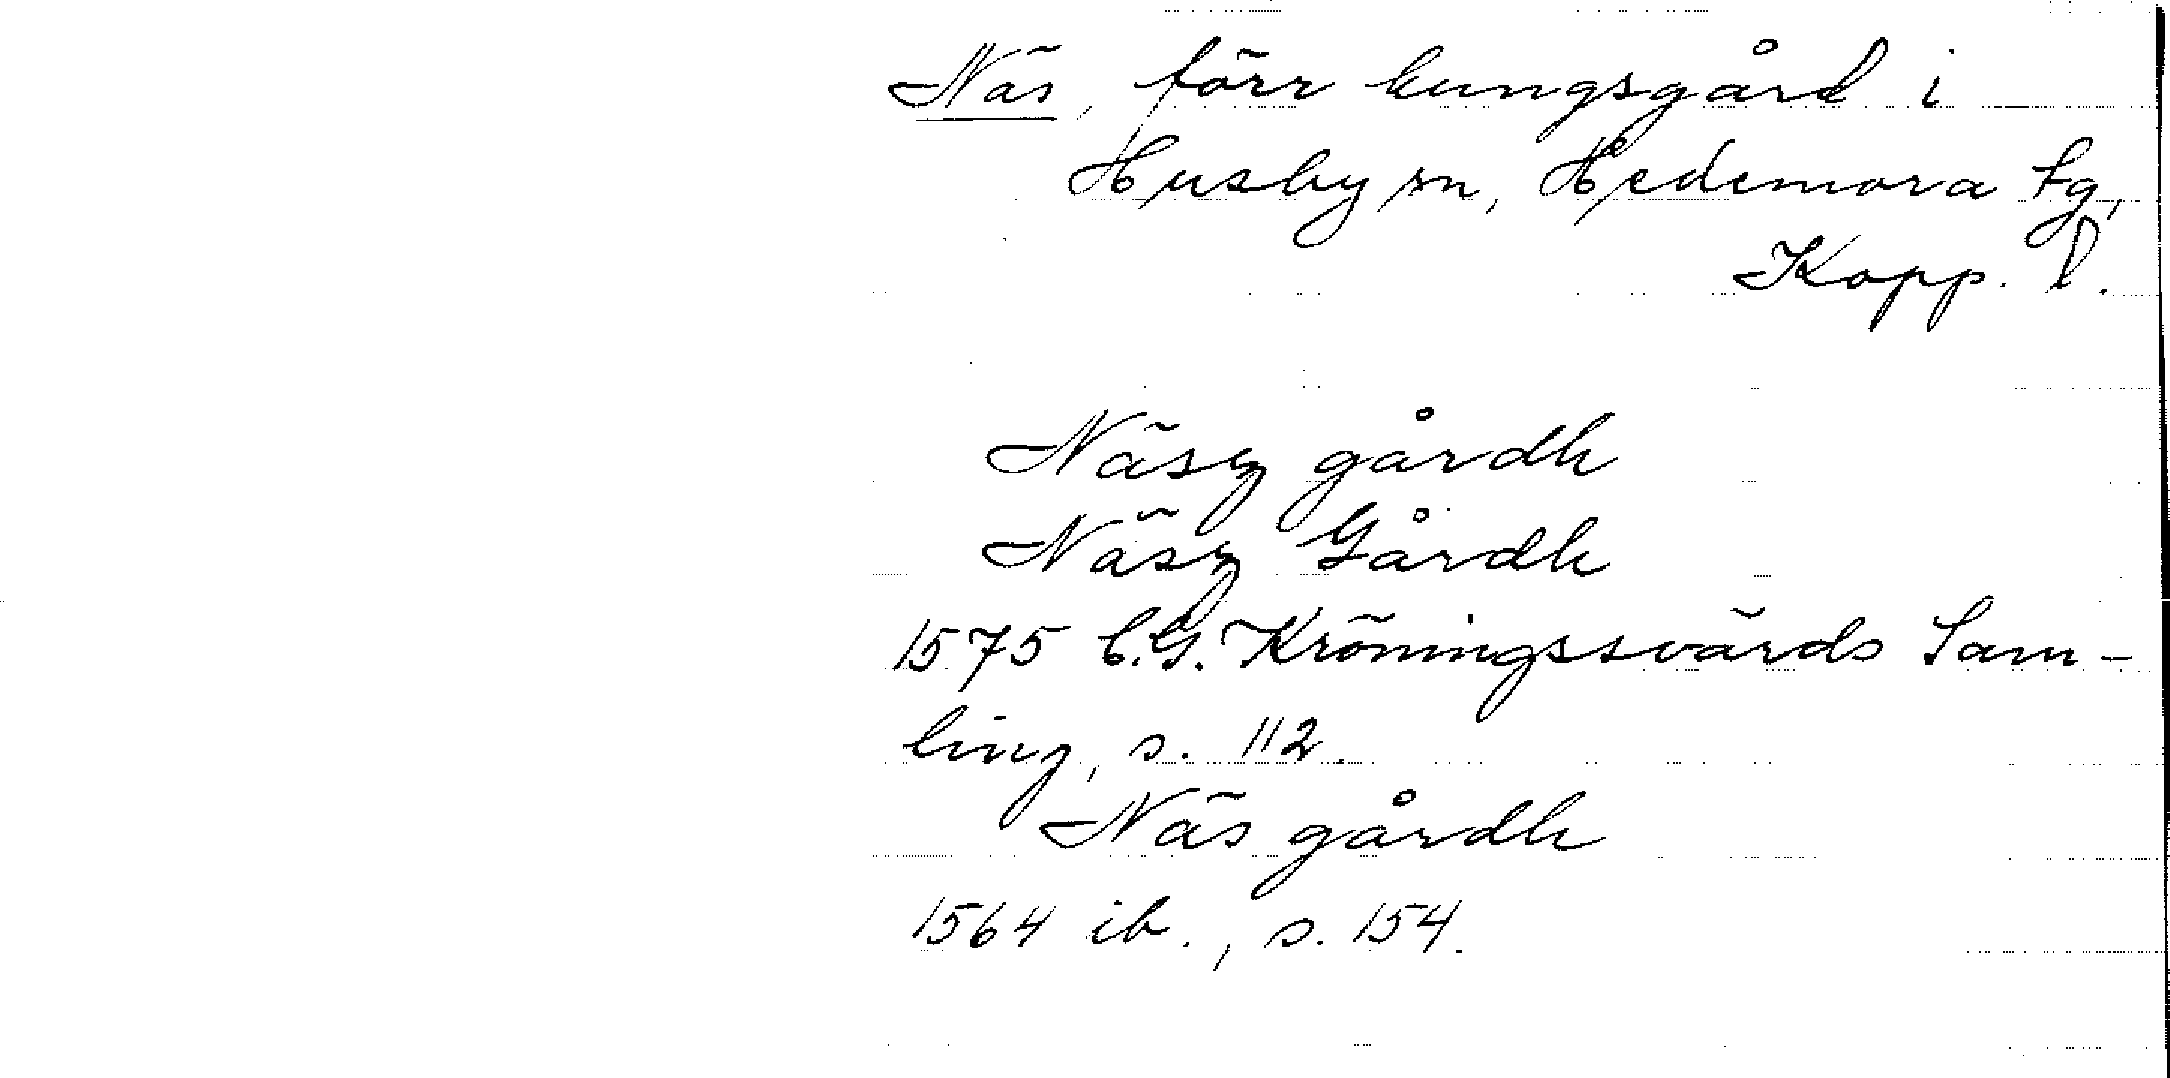 Näs, förr kungsgård i
Husby sn, Hedemora tg,
Kopp. l.
Näsz gårdh
Näsz Gårdh
1575 C.G. Kröningssvärds Sam-
ling, s. 112.
Näs gårdh
1564 ib., s. 154.